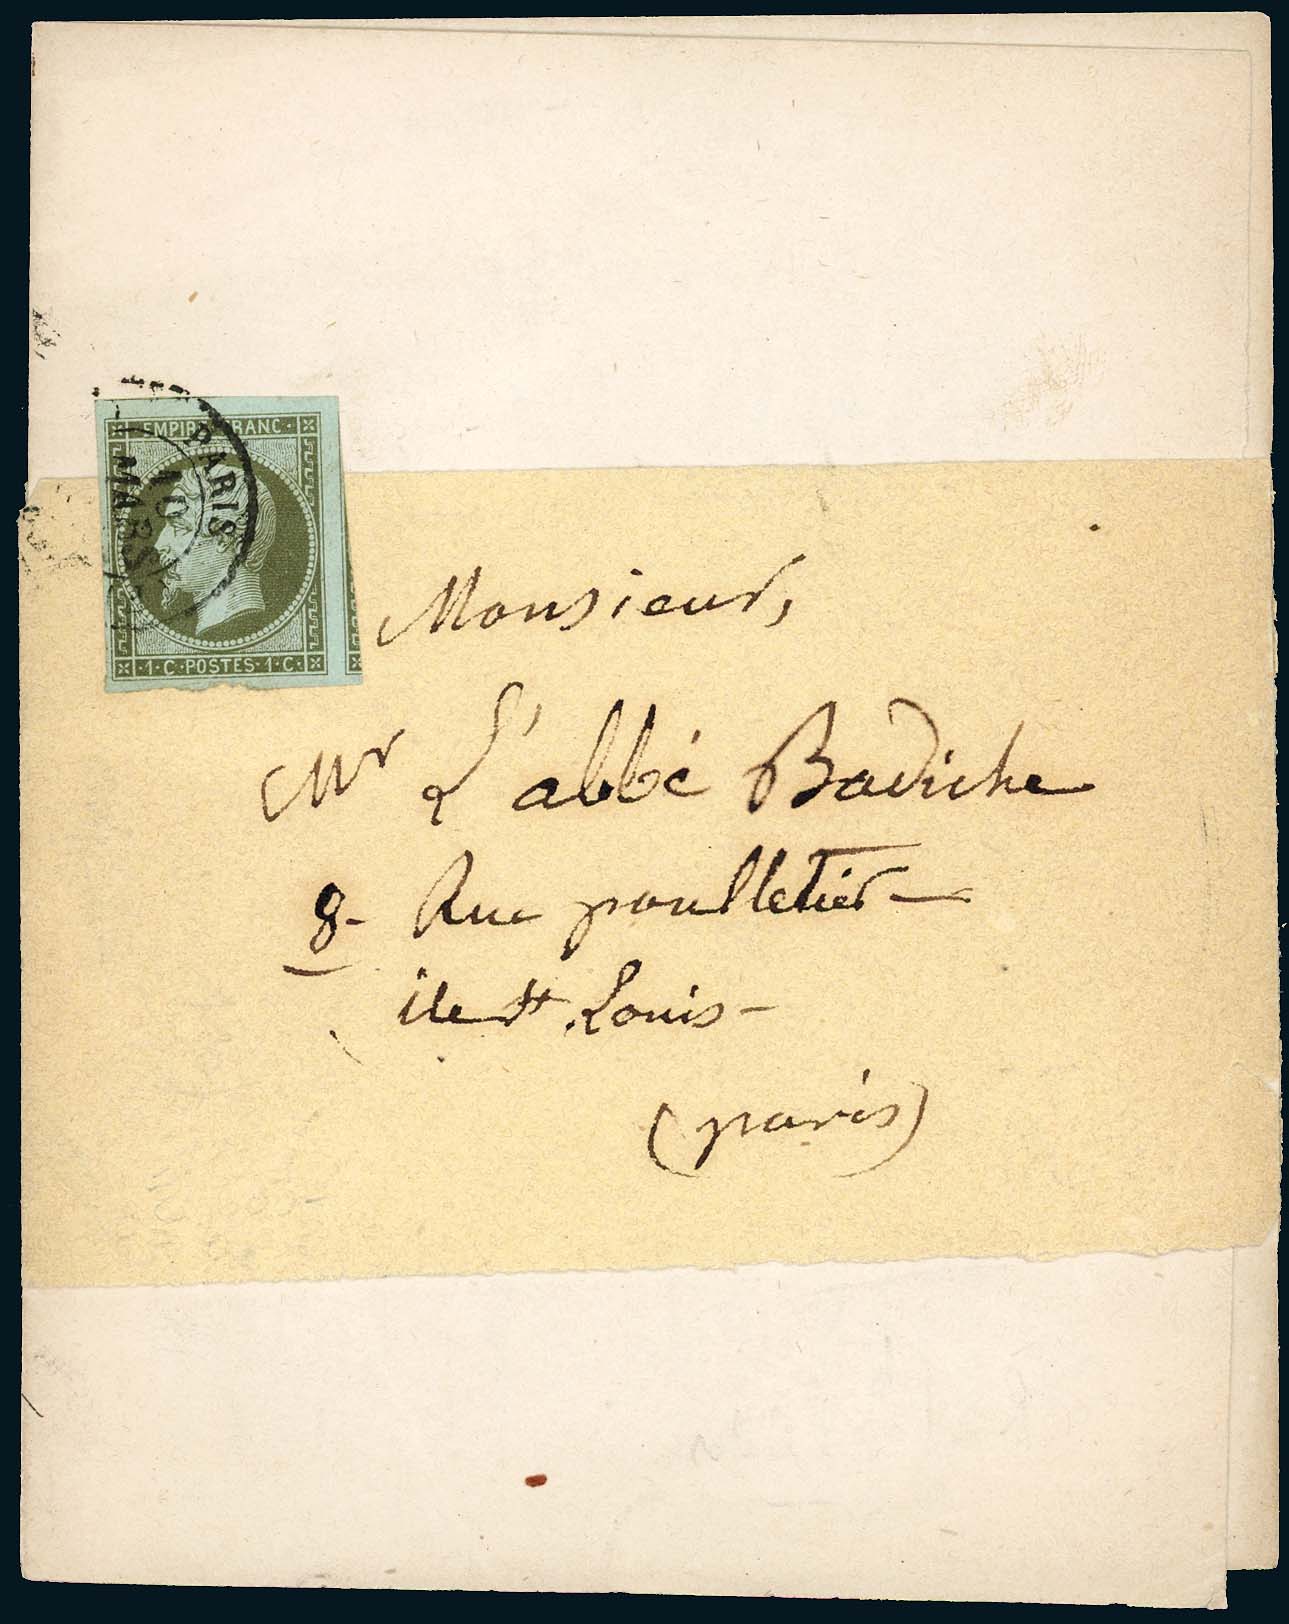 EMPIRE FRANC.
PARIS
10
MARS
1.C.POSTES.1.C.
Monsieur,
Mr L'abbé Badiche
8- Rue poulletier-
ile St Louis-
(paris)